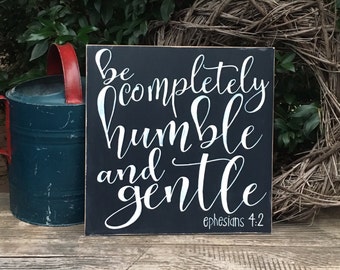 be
completely
humble
and
gentle
ephesians 4:2